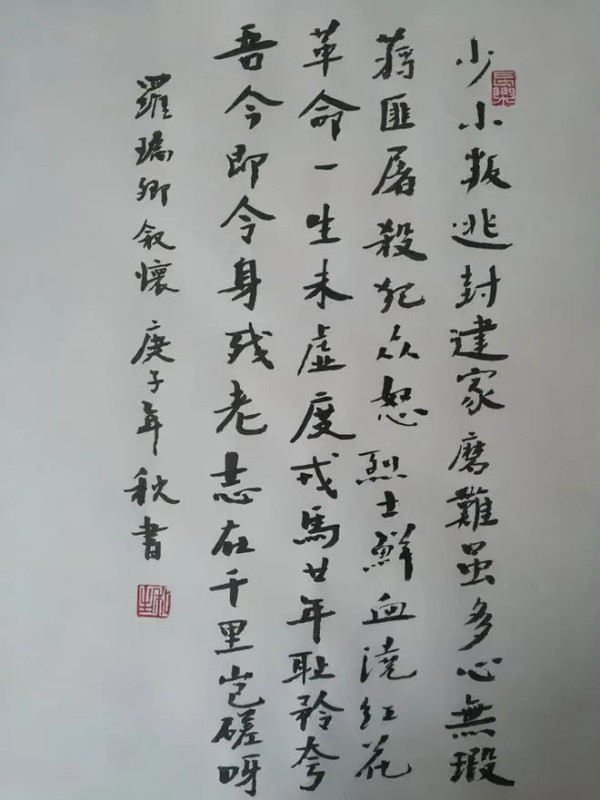 少小叛逃封建家磨難虽多心無瑕
蒋匪屠殺犯众怒烈士鮮血浇红花
革命一生未虚度戎馬廿年耻矜夸
吾今即令身残老志在千里岂磋呀
羅瑞卿叙懷 庚子年秋書